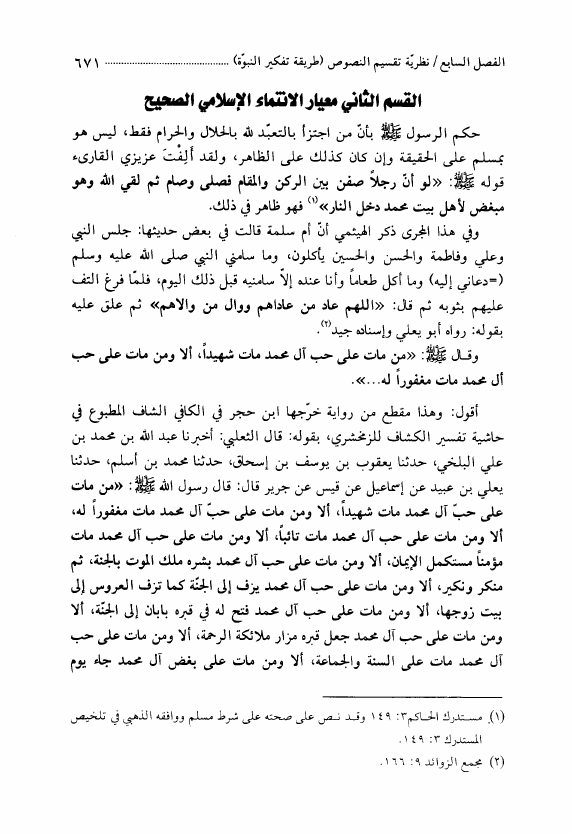 الفصل السابع/ نظريّة تقسيم النصوص (طريقة تفكير النبوّة) ............................................ ٦٧١
القسم الثاني معيار الانتماء الإسلامي الصحيح
حكم الرسول ﷺ بأنّ من اجتزأ بالتعبّد لله بالحلال والحرام فقط، ليس هو
بمسلم على الحقيقة وإن كان كذلك على الظاهر، ولقد أَلِفْتَ عزيزي القارىء
قوله ﷺ: «لو أنّ رجلاً صفن بين الركن والمقام فصلى وصام ثم لقي الله وهو
مبغض لأهل بيت محمد دخل النار»(١) فهو ظاهر في ذلك.
وفي هذا المجرى ذكر الهيثمي أنّ أم سلمة قالت في بعض حديثها: جلس النبي
وعلي وفاطمة والحسن والحسين يأكلون، وما سامني النبي صلى الله عليه وسلم
(=دعاني إليه) وما أكل طعاماً وأنا عنده إلاّ سامنيه قبل ذلك اليوم، فلمّا فرغ التف
عليهم بثوبه ثم قال: «اللهم عاد من عاداهم ووال من والاهم» ثم علق عليه
بقوله: رواه أبو يعلي وإسناده جيد(٢).
وقال ﷺ: «من مات على حب آل محمد مات شهيداً، ألا ومن مات على حب
أل محمد مات مغفوراً له...».
أقول: وهذا مقطع من رواية خرّجها ابن حجر في الكافي الشاف المطبوع في
حاشية تفسير الكشاف للزمخشري، بقوله: قال الثعلبي: أخبرنا عبد الله بن محمد بن
علي البلخي، حدثنا يعقوب بن يوسف بن إسحاق، حدثنا محمد بن أسلم، حدثنا
يعلي بن عبيد عن إسماعيل عن قيس عن جرير قال: قال رسول الله ﷺ: «من مات
على حبّ آل محمد مات شهيداً، ألا ومن مات على حبّ آل محمد مات مغفوراً له،
ألا ومن مات على حب آل محمد مات تائباً، ألا ومن مات على حب آل محمد مات
مؤمناً مستكمل الإيمان، ألا ومن مات على حب آل محمد بشره ملك الموت بالجنة، ثم
منكر ونكير، ألا ومن مات على حب آل محمد يزف إلى الجنّة كما تزف العروس إلى
بيت زوجها، ألا ومن مات على حب آل محمد فتح له في قبره بابان إلى الجنّة، ألا
ومن مات على حب آل محمد جعل قبره مزار ملائكة الرحمة، ألا ومن مات على حب
آل محمد مات على السنة والجماعة، ألا ومن مات على بغض آل محمد جاء يوم
(١) مستدرك الحاكم٣: ١٤٩ وقد نص على صحته على شرط مسلم ووافقه الذهبي في تلخيص
المستدرك ٣: ١٤٩.
(٢) مجمع الزوائد ٩: ١٦٦.